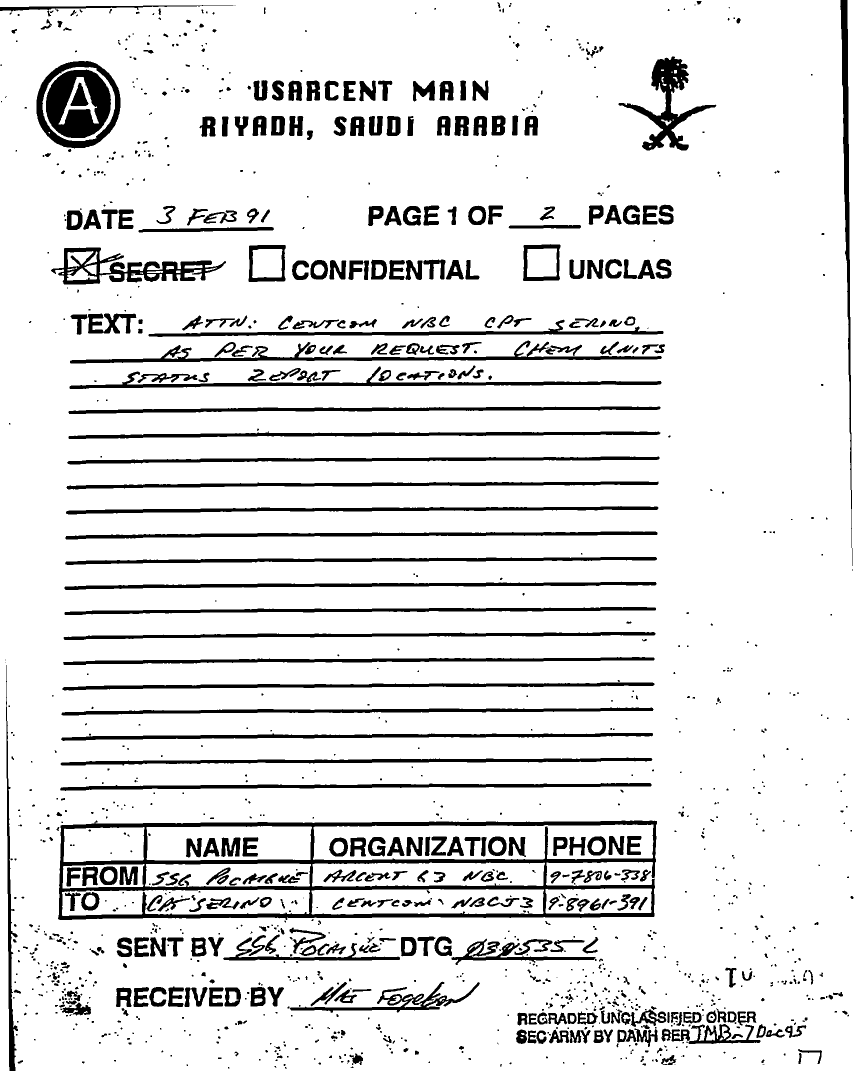 A
USARCENT MAIN
RIYADH, SAUDI ARABIA
DATE 3 FEB 91 PAGE 1 OF 2 PAGES
SECRET CONFIDENTIAL UNCLAS
TEXT: ATTN: CENTCOM NBC CPT SERINO,
AS PER YOUR REQUEST. CHEM UNITS
STATUS REPORT LOCATIONS.
NAME ORGANIZATION PHONE
FROM SSG ARCENT G3 NBC. 9-7806-338
TO SERINO CENTCOM NBCJ3 9-8961-391
SENT BY SSG. DTG 030535 L
RECEIVED BY
REGRADED UNCLASSIFIED ORDER
SEC ARMY BY DAMH PER TMB-7Dec95